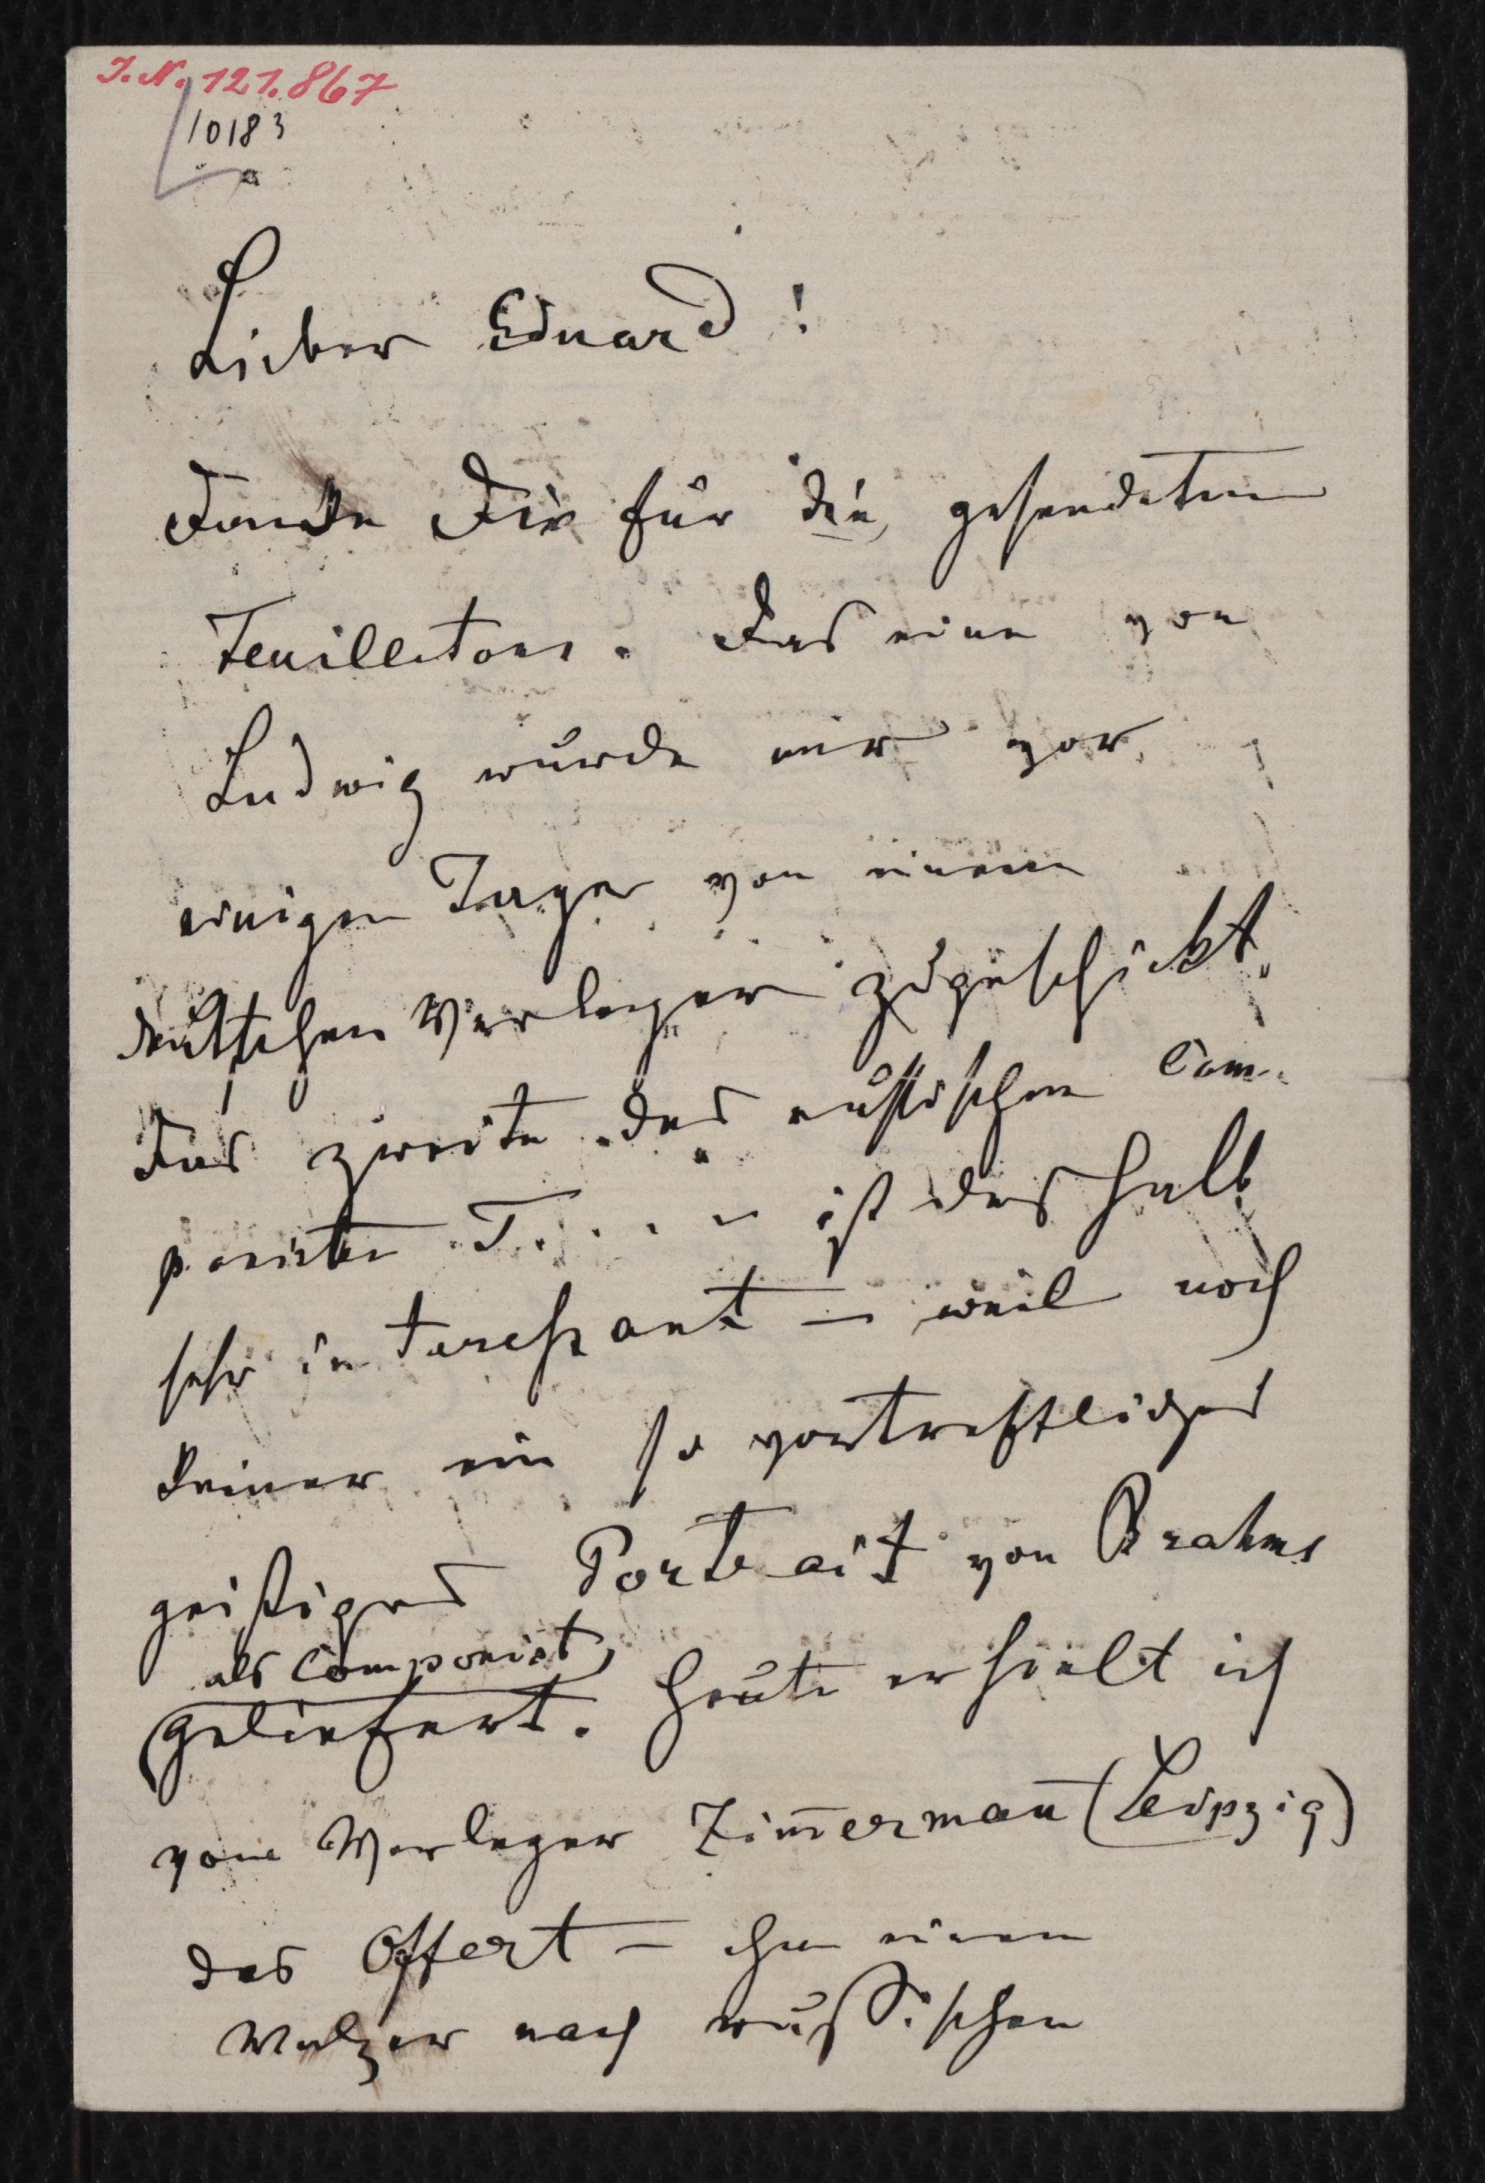 J. N. 121.867
10183
Lieber Eduard!
Danke Dir für die gesendeten
Feuilletons. Das eine von
Ludwig wurde mir vor
einigen Tagen von einem
deutschen Verleger zugeschickt.
Das zweite des russischen Com-
ponisten T. . . . ist deshalb
sehr interessant – weil noch
keiner ein so vortreffliches
geistiges Portrait von Brahms
als Componist,
geliefert. Heute erhielt ich
vom Verleger Zim̅erman̅ (Leipzig)
das Offert – ihm einen
Walzer nach russischen